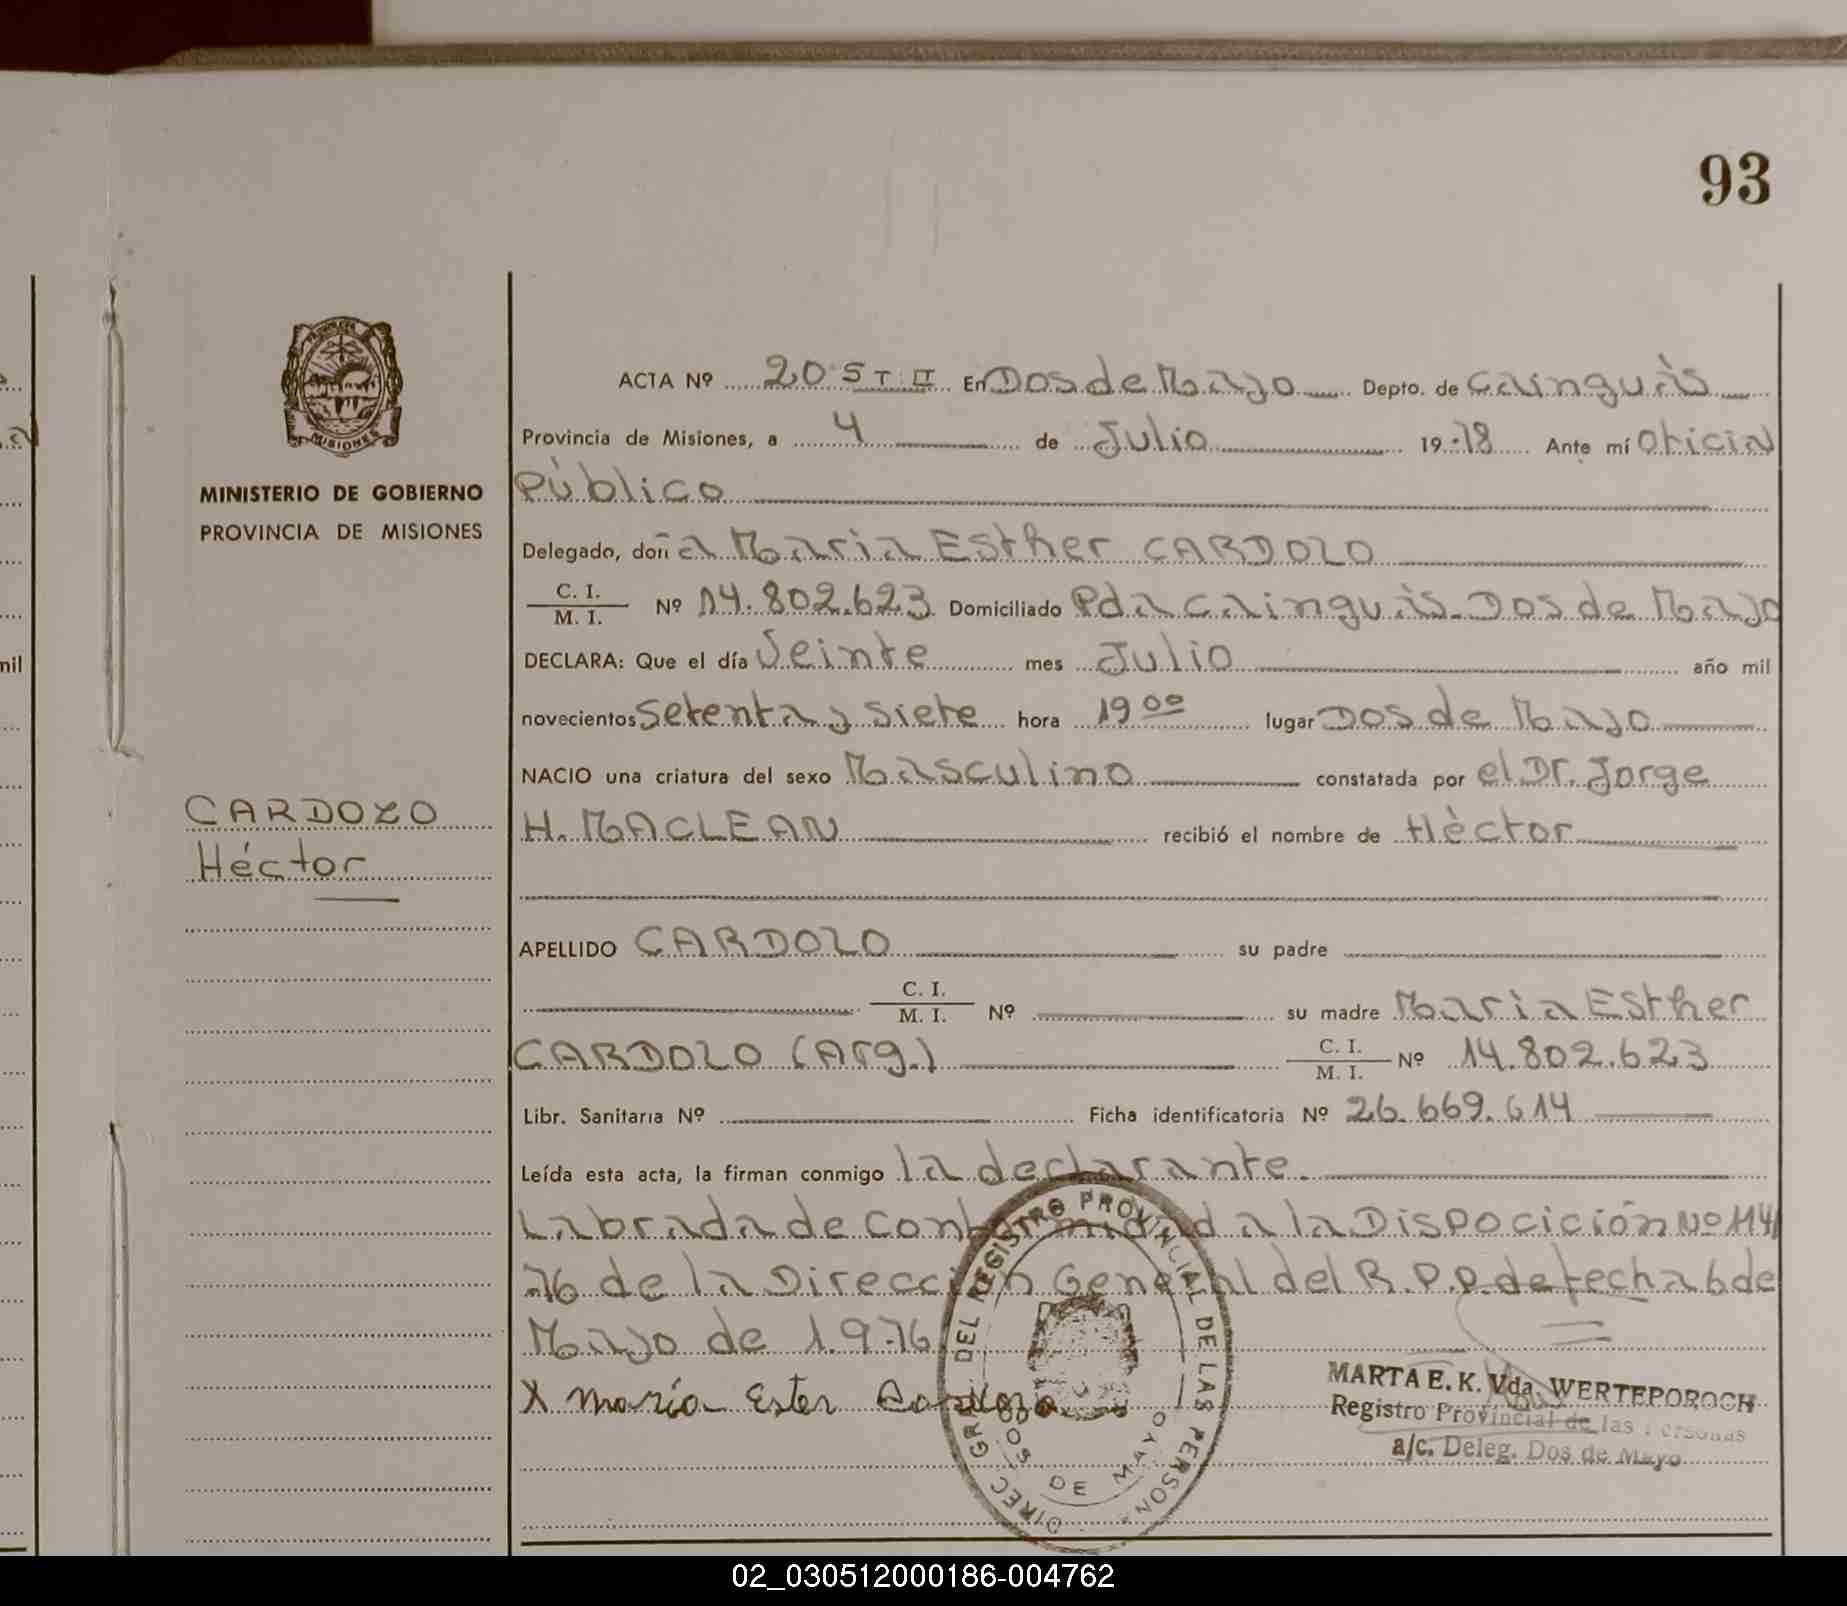 93
ACTA Nº 205 T II En Dos de Mayo Depto. de Cainguàs
Provincia de Misiones, a 4 de Julio 19 78 Ante mí Oficial
Público
Delegado, doñ a Maria Esther CARDOZO
C. I.
M. I. Nº 14.802.623 Domiciliado Pda Cainguàs - Dos de Mayo
DECLARA: Que el día Veinte mes Julio año mil
novecientos setenta y siete hora 19 00 lugar Dos de Mayo
NACIO una criatura del sexo Masculino constatada por el Dr. Jorge
H. MACLEAN recibió el nombre de Hèctor
APELLIDO CARDOZO su padre
C. I.
M. I. Nº su madre Maria Esther
CARDOZO (Arg.) C. I.
M. I. Nº 14.802.623
Libr. Sanitaria Nº Ficha identificatoria Nº 26.669.614
Leída esta acta, la firman conmigo la declarante.
Labrada de conformidad a la Disposición Nº 114/
76 de la Dirección General del R.P.P. de fecha 6 de
Mayo de 1.976
X María Ester Cardozo
MINISTERIO DE GOBIERNO
PROVINCIA DE MISIONES
MISIONES
CARDOZO
Héctor
mil
DIREC GRAL DEL REGISTRO PROVINCIAL DE LAS PERSONAS
DOS DE MAYO
MARTA E. K. Vda. WERTEPOROCH
Registro Provincial de las Personas
a/c. Deleg. Dos de Mayo
02_030512000186-004762